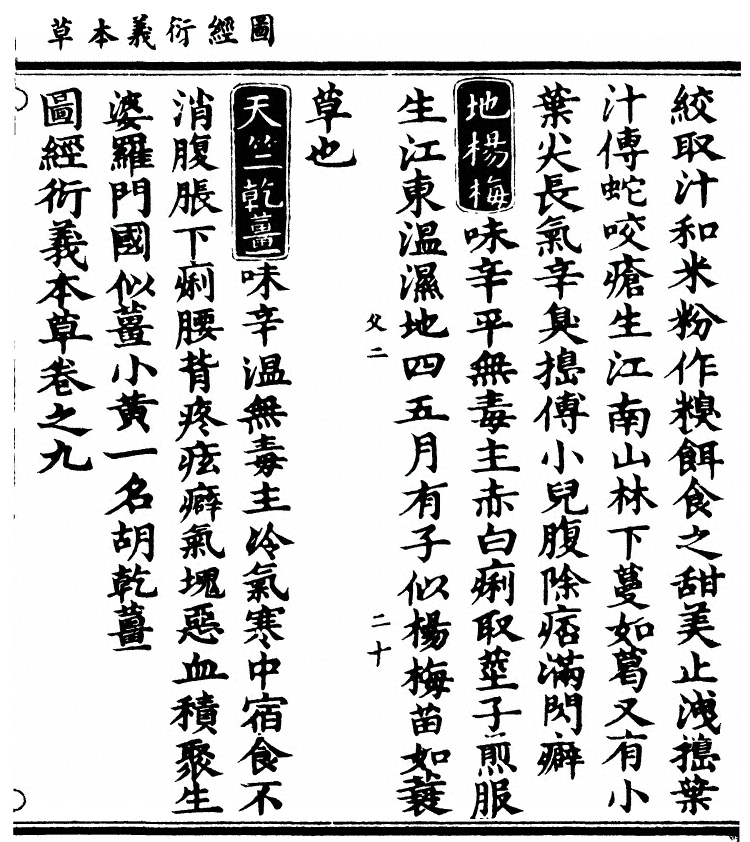 圖經衍義本草
絞取汁和米粉作糗餌食之甜美止洩搗葉
汁傅蛇咬瘡生江南山林下蔓如葛又有小
葉尖長氣辛臭搗傅小兒腹除痞滿閃癖
地楊梅味辛平無毒主赤白痢取莖子煎服
生江東溫濕地四五月有子似楊梅苗如蓑
父二
二十
草也
天竺乾薑味辛溫無毒主冷氣寒中宿食不
消腹脹下痢腰背疼痃癖氣塊惡血積聚生
婆羅門國似薑小黃一名胡乾薑
圖經衍義本草卷之九